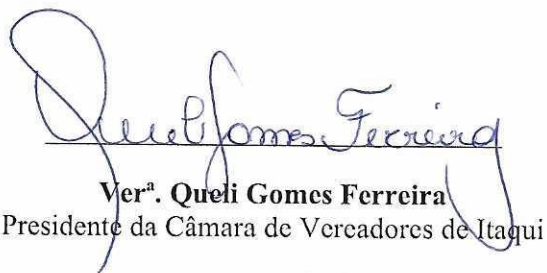 Queli Gomes Ferreira
Verª. Queli Gomes Ferreira
Presidente da Câmara de Vereadores de Itaqui